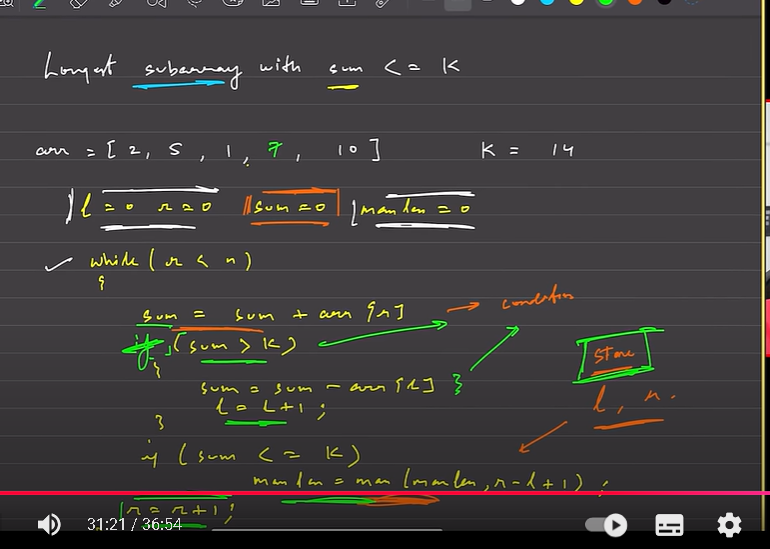 Longest subarray with sum <= K
arr = [ 2, 5, 1, 7, 10 ] K = 14
l = 0 r = 0 sum = 0 maxlen = 0
while ( r < n )
{
sum = sum + arr[r] → condition
if (sum > K)
{
store
sum = sum - arr[l] }
l = l+1 ;
l, r.
}
if (sum <= K)
maxlen = max (maxlen, r-l+1) ;
r = r+1 ;
31:21 / 36:54